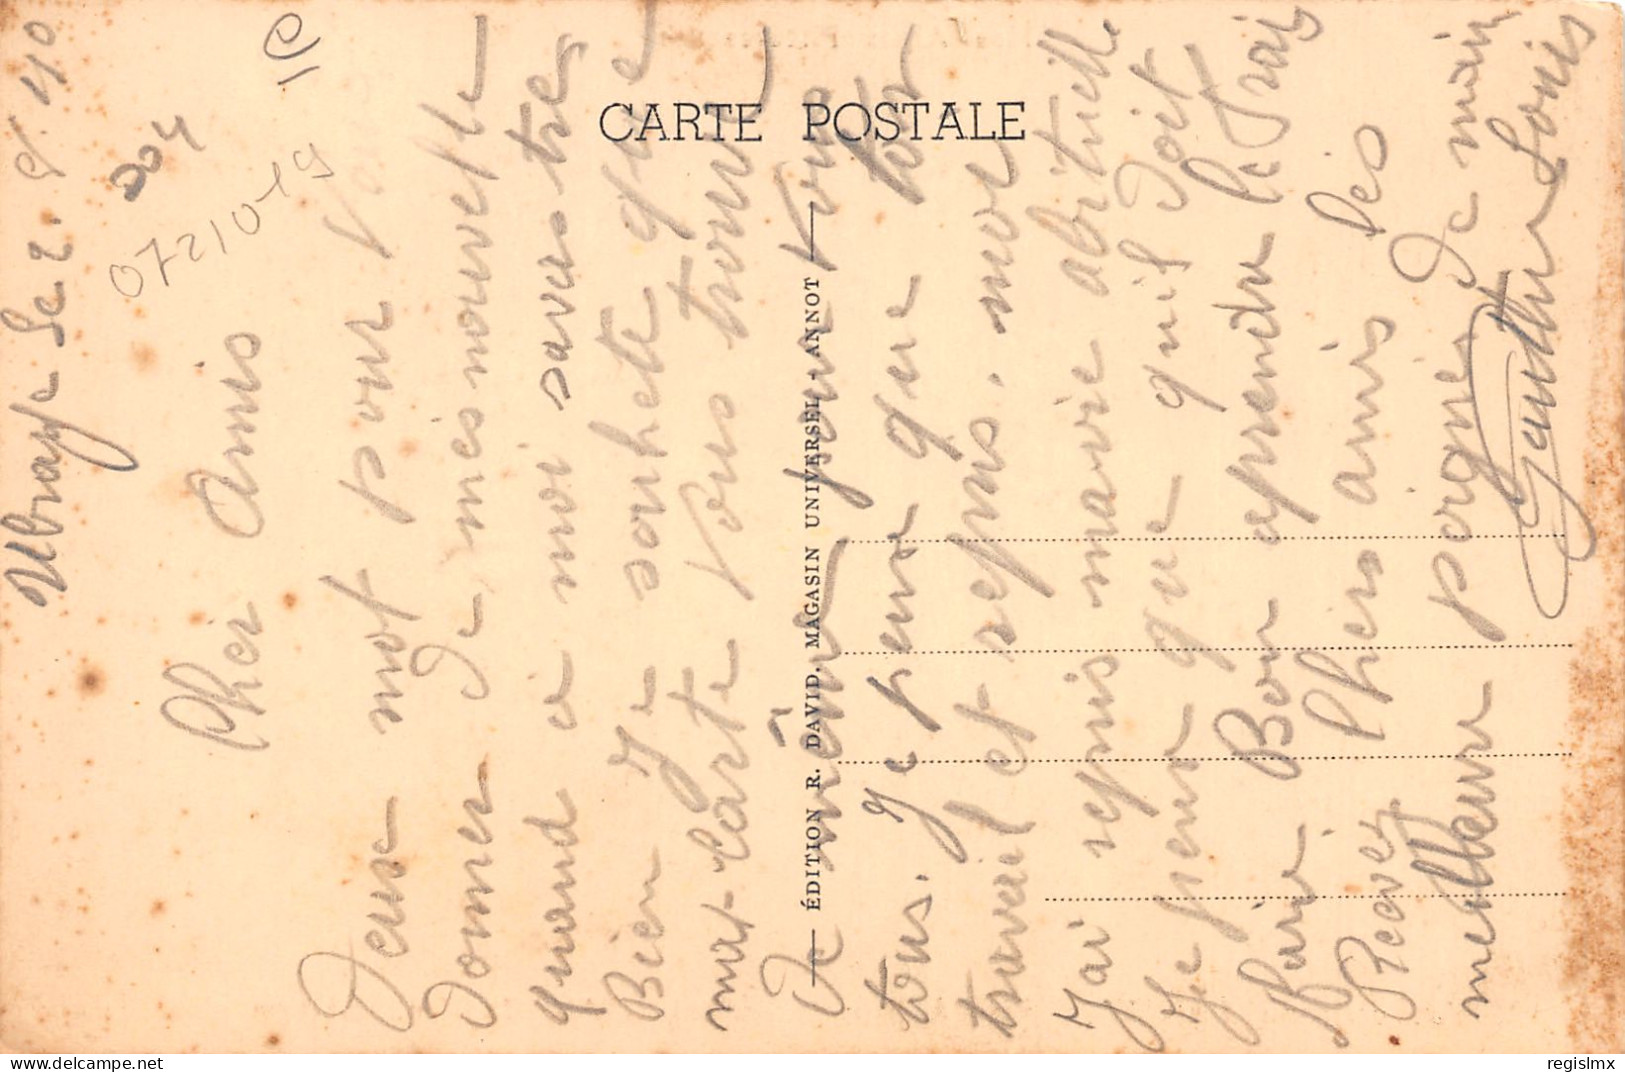 Ubraye Le 2. 9. 40
Cher Amis
Deux mot pour Vous
Donner De mes nouvelle
quand a moi savas tres
Bien Je souhete que
mat-Carte Vous trouve
De même pour Vous
tous. Je pense que ton
travail et repris. moi
J'ai repris mavie abituelle
Je pense que quil Doit
faire Bon aprendre le Frais
Recevez Chers amis les
meilleure poignés De main
Gauthier Louis
CARTE POSTALE
ÉDITION R. DAVID, MAGASIN UNIVERSEL - ANNOT
204
07210-19
1€
regislmx